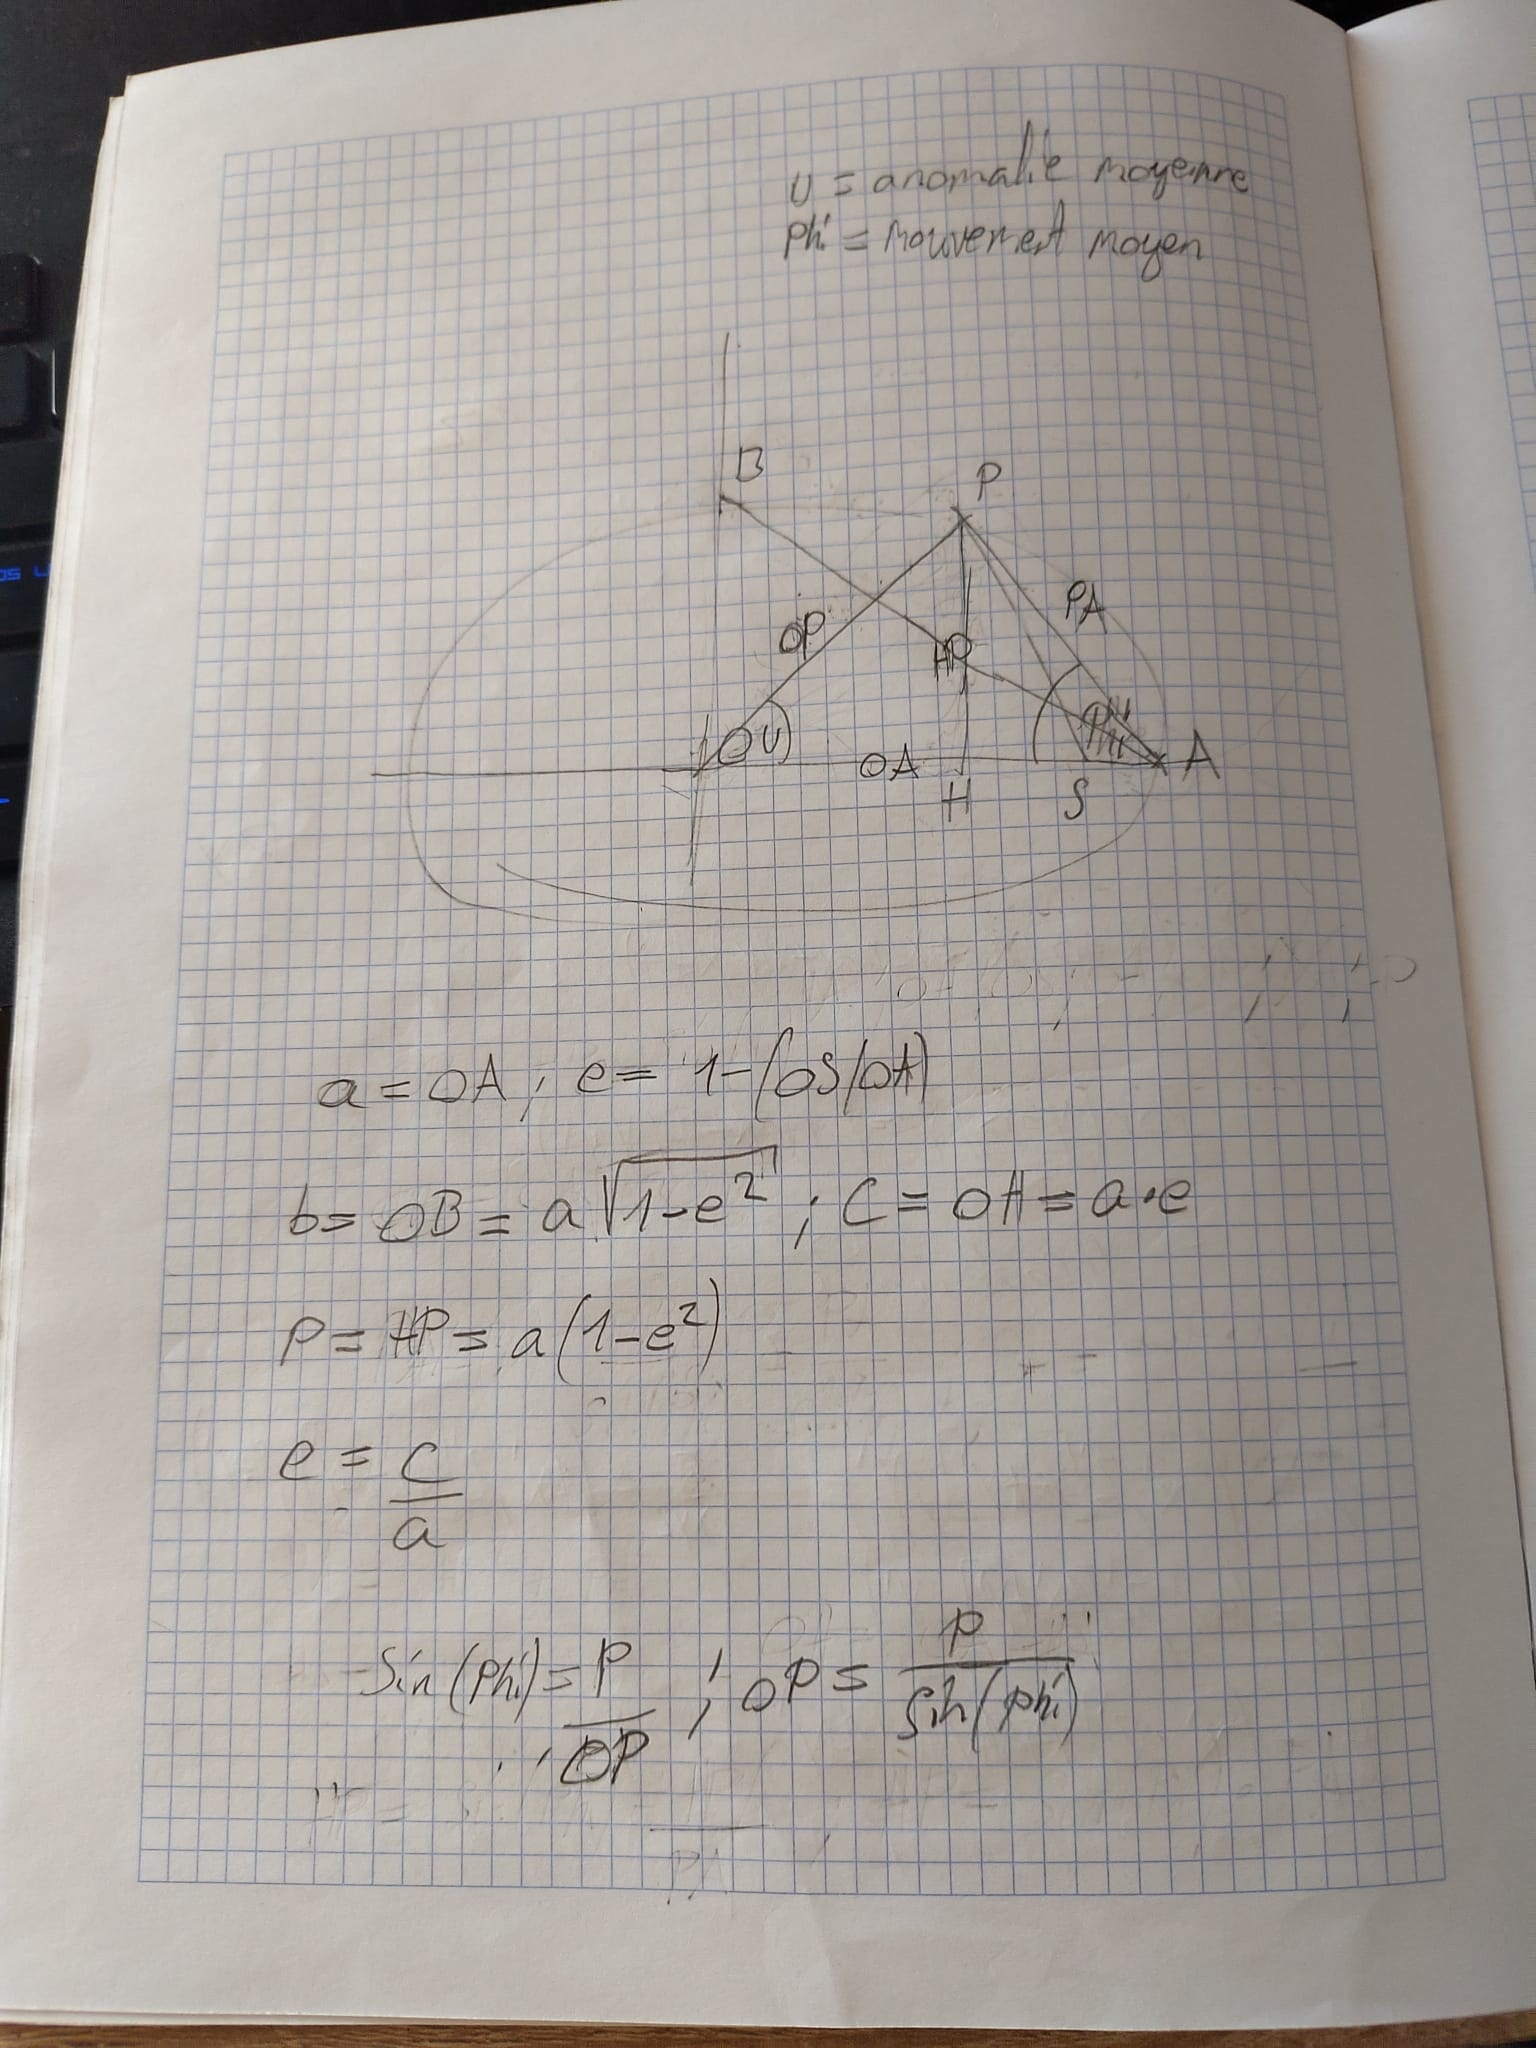 U = anomalie moyenne
Phi = mouvement moyen
B
P
OP
HP
PA
O U
OA
Phi
A
H
S
a = OA ; e = 1-(OS/OA)
b = OB = a √1-e² ; C = OH = a•e
P = HP = a(1-e²)
e = C
a
Sin(Phi) = P ; OP = P
OP Sin(Phi)